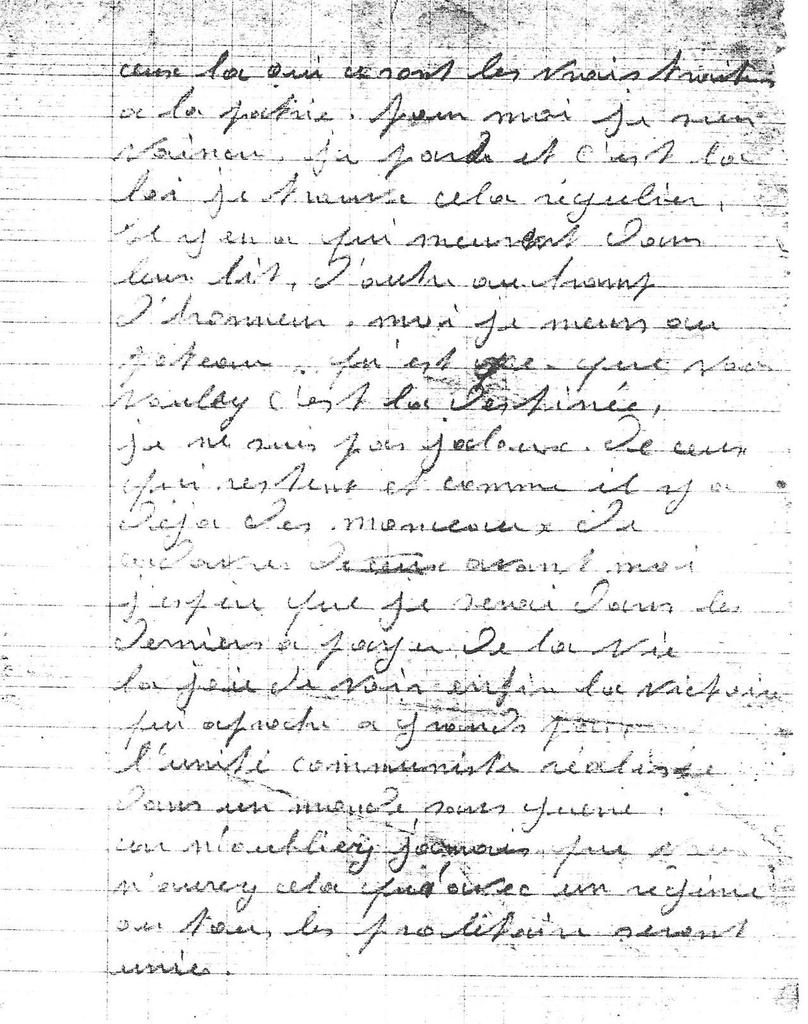 ceux la qui ceront les vrais traitres
a la patrie. pour moi je suis
vaincu. je perds et c'est la
loi je trouve cela régulier,
il y en a qui meurent dans
leur lit, d'autre au champ
d'honneur. moi je meurs au
poteau. qu'est ce que vous
voulez c'est la destinée,
je ne suis pas jaloux de ceux
qui restent et comme il y a
déja des monceaux de
cadavres avant moi
j'espère que je serai dans les
derniers a payer de la vie
la joie de voir enfin la victoire
qui aproche a grands pas
l'unité communiste réalisée
dans un monde sans guerre.
car n'oubliez jamais que vous
n'aurez cela qu'avec un régime
ou tou les prolitaire seront
unie.